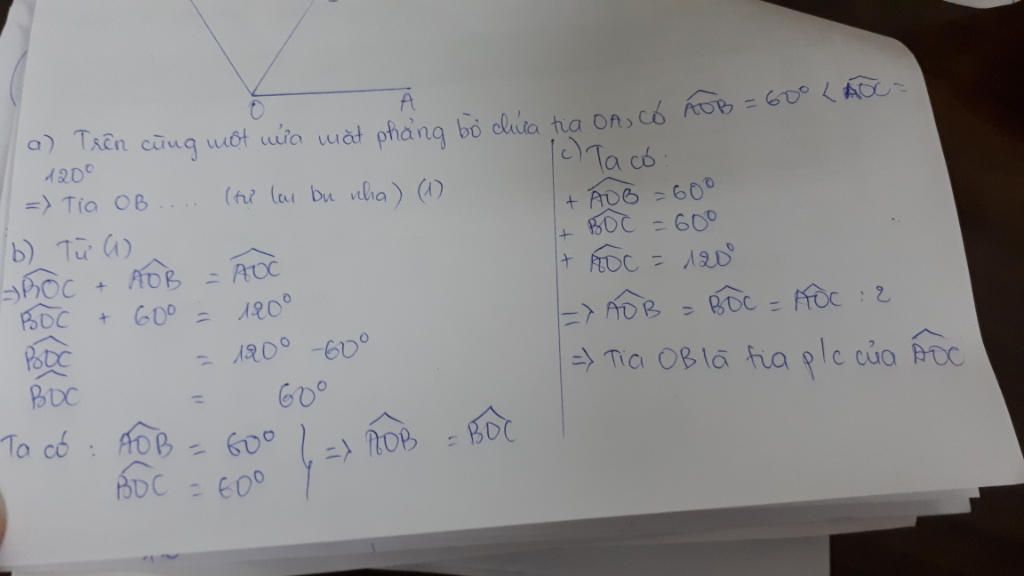 O A
a) Trên cùng một nửa mặt phẳng bờ chứa tia OA, có AOB = 60° < AOC =
120°
=> Tia OB .... (tự lm bn nha) (1)
b) Từ (1)
=> BOC + AOB = AOC
BOC + 60° = 120°
BOC = 120° - 60°
BOC = 60°
Ta có : AOB = 60°
BOC = 60°
} => AOB = BOC
c) Ta có:
+ AOB = 60°
+ BOC = 60°
+ AOC = 120°
=> AOB = BOC = AOC : 2
=> Tia OB là tia p/c của AOC